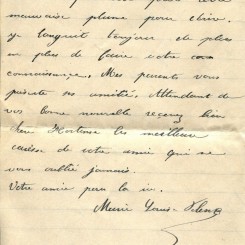 mauvaise plume pour écrire.
je languit toujour de plus
en plus de faire votre con
connaissance. Mes parents vous
présente ses amitié. Attendant de
vos bonne nouvelle recevez bien
chère Hortense les meilleure
caresse de votre amie qui ne
vous oublié jamais.
Votre amie pour la vie.
Marie Louise